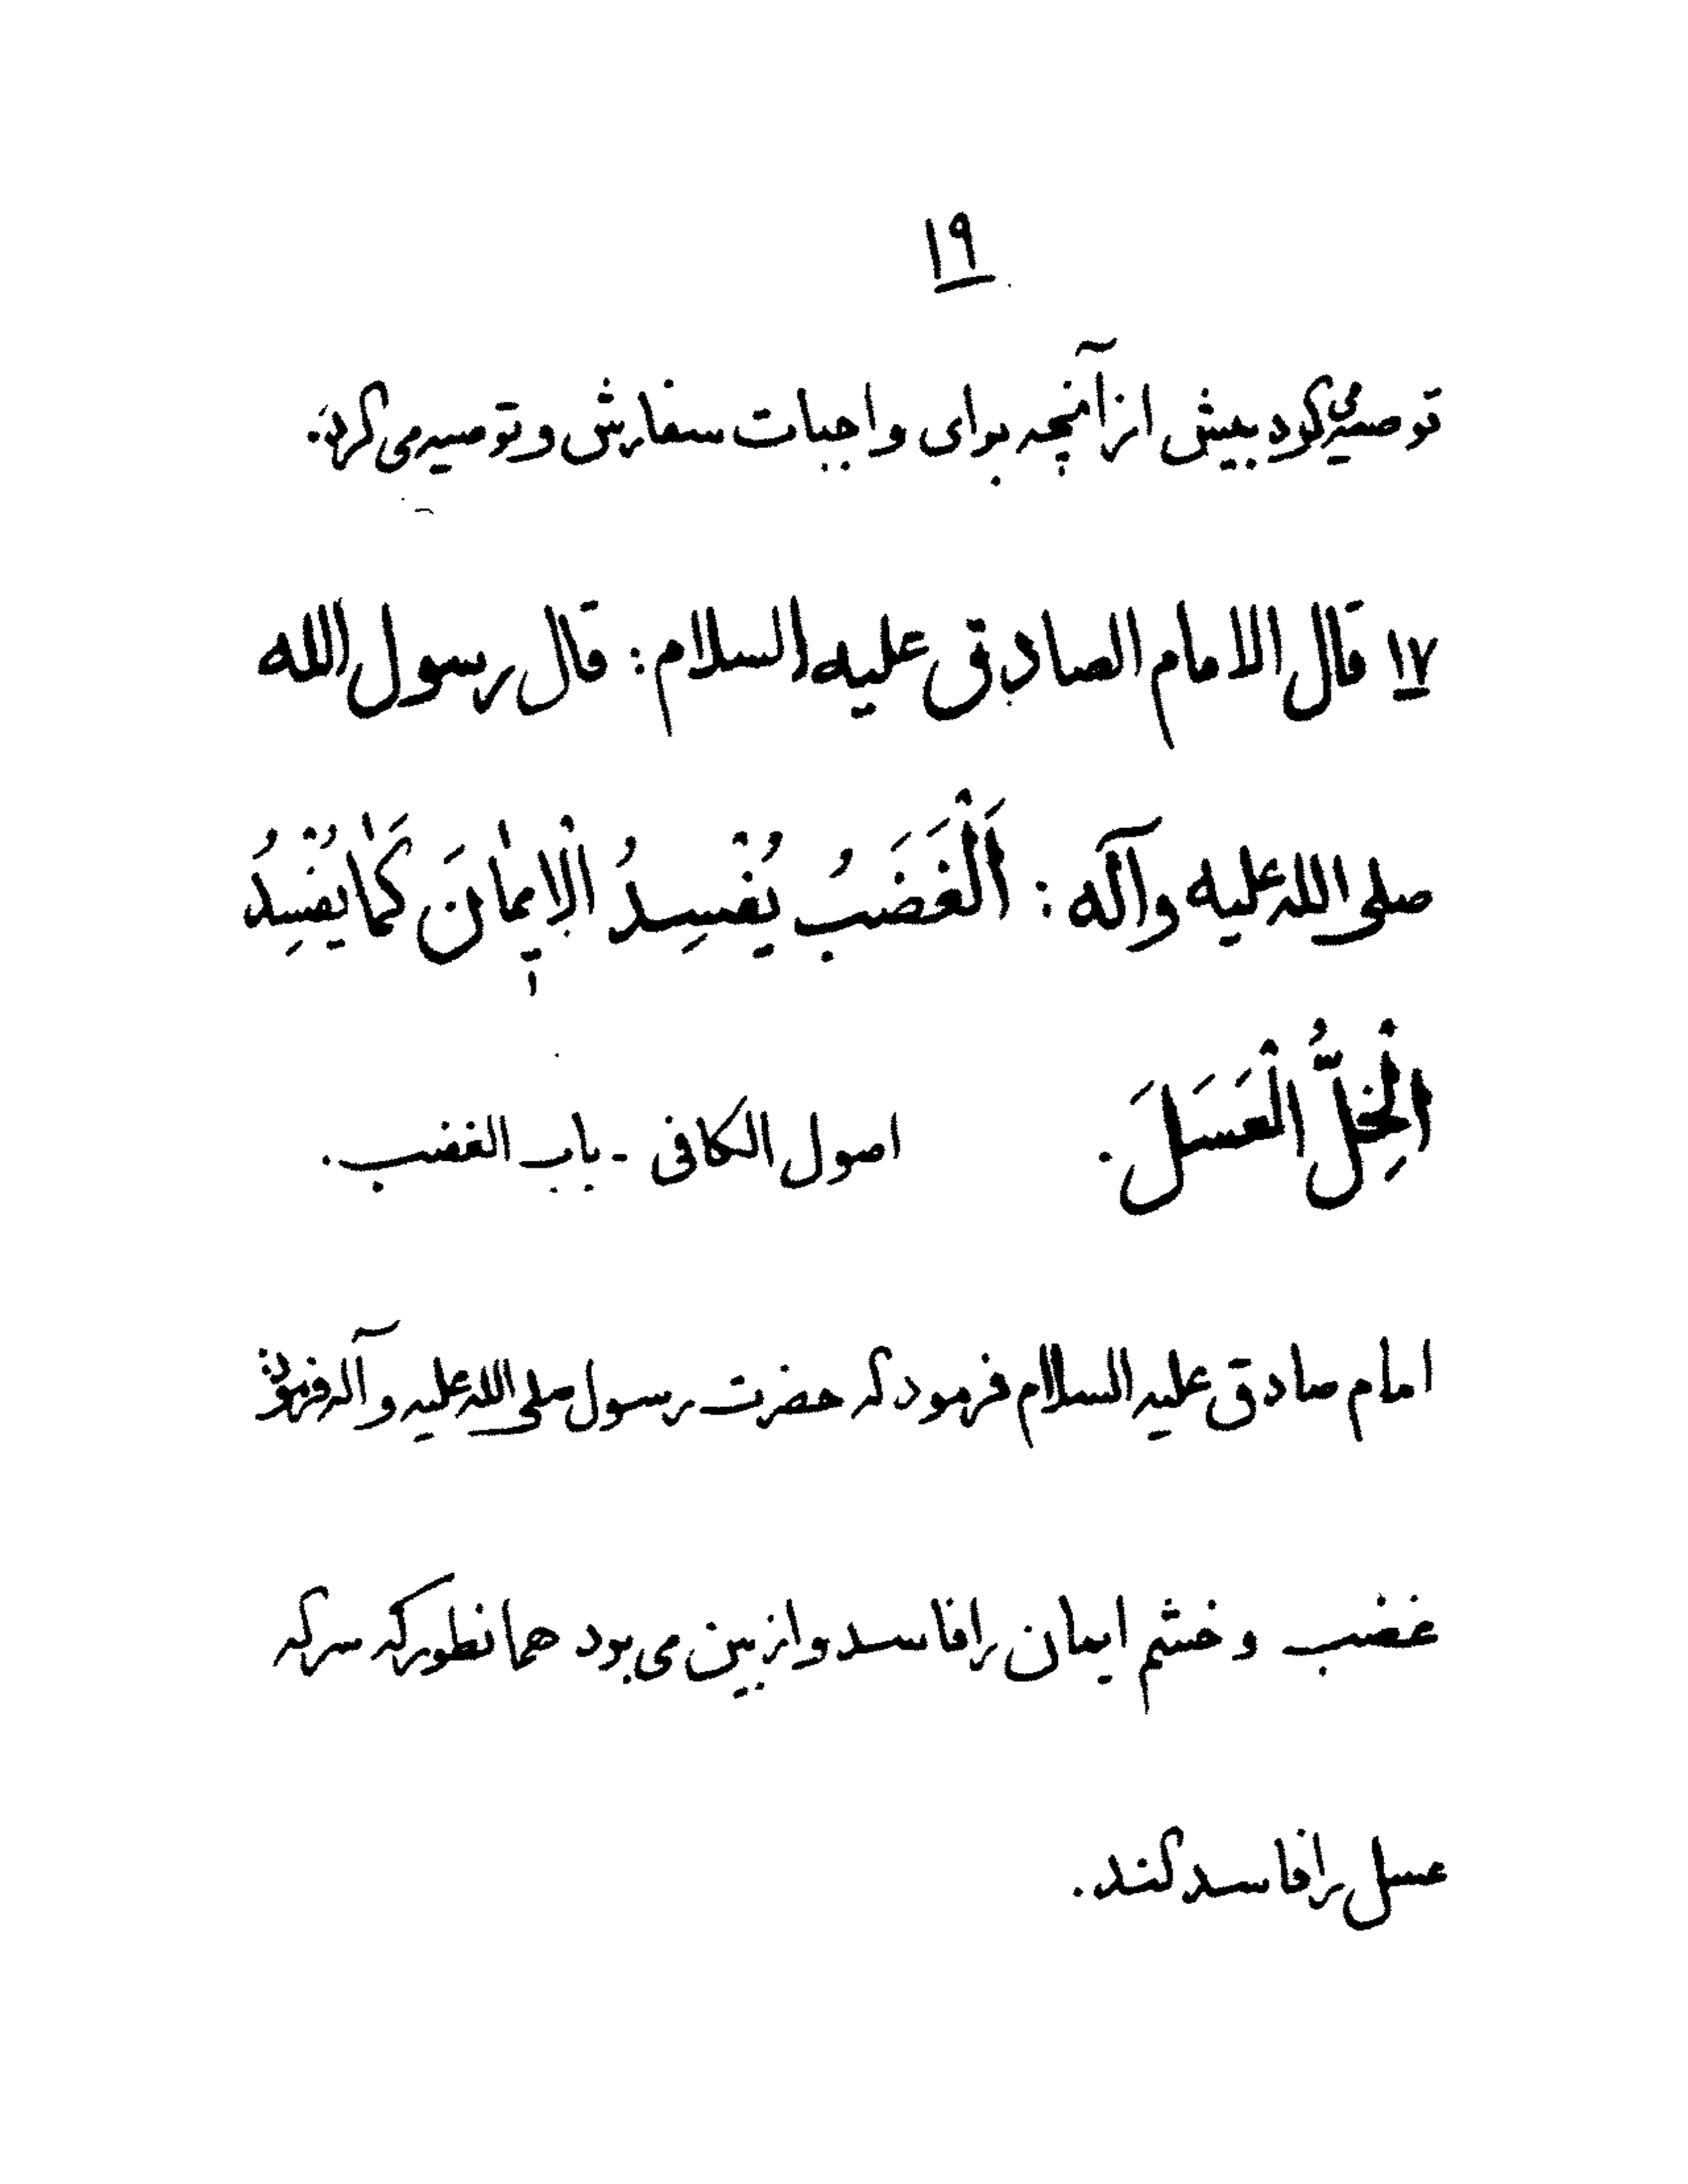 ۱۹
توصیه می‌کرد بیش از آنچه برای واجبات سفارش و توصیه می کرد.
۱۷ قال الامام الصادق علیه السلام: قال رسول الله
صلی الله علیه وآله: اَلْغَضَبُ یُفْسِدُ الْاِیمٰانَ کَمٰا یُفْسِدُ
الْخِلُّ الْعَسَلَ. اصول الکافی - باب الغضب.
امام صادق علیه السلام فرمود که حضرت رسول صلی الله علیه وآله فرمود:
غضب و خشم ایمان را فاسد و از بین می برد همانطور که سرکه
عسل را فاسد کند.